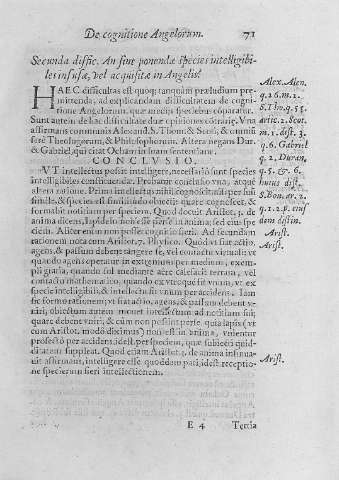 De cognitione Angelorum. 71
Secunda diffic. An sint ponendæ species intelligibi-
les infusæ, vel acquisitæ in Angelis?
HAEC difficultas est quoq; tanquàm præludium præ-
mittenda, ad explicandam difficultatem de cogni-
tione Angelorum, quæ arctiùs speciebus copulatur.
Sunt autem de hac difficultate duæ opiniones extremæ. Vna
affirmans communis Alexand. S. Thom. & Scoti, & omniũ
ferè Theologorum, & Philosophorum. Altera negans Dur.
& Gabriel, qui citat Ocham in suam sententiam.
CONCLVSIO.
VT intellectus possit intelligere, necessariò sunt species
intelligibiles constituendæ. Probatur conclusio vna, atquè
altera ratione. Prima intellectus intelligit rem per sui
simile, & species est similitudo obiecti: quare cognoscet, &
formabit notitiam per speciem. Quod docuit Aristot. 3. de
anima dicens, lapidem non esse per se in anima, sed eius spe-
ciem. Aliter enim non posset cognitio fieri. Ad secundam
rationem nota cum Aristot. 7. Physico. Quòd vt fiat actio,
agens, & passum debent tangere se, vel contactu virtuali: vt
quando agens operatur in extremum per medium, exem-
pli gratia, quando sol mediante aere calefacit terram, vel
contactu mathematico, quando ex vtroque sit vnum, vt ex
specie intelligibili, & intellectu sit vnum per accidens. Iam
sic formo rationem: vt fiat actio, agens, & passum debent v-
niri, obiectum autem mouet intellectum ad notitiam sui;
quare debent vniri, & cùm non possint per se, quia lapis (vt
cum Aristot. modò diximus) non est in anima, venientur
profectò per accidens, idest, per speciem, quæ subiecti quid-
ditatem suppleat. Quod etiam Aristot. 3. de anima insinua-
uit affirmans, intelligere esse quoddam pati, idest receptio-
ne specierum fieri intellectionem.
Alex. Alen.
q. 26. m. 2.
S. Tho. q. 55.
artic. 2. Scot.
m. 1. dist. 3.
q. 6. Gabriel
q. 2. Duran.
q. 5. & 6.
huius dist.
S. Bon. ar. 2.
q. 2. eius
dem distin.
Arist.
Arist.
Arist.
E 4 Tertia